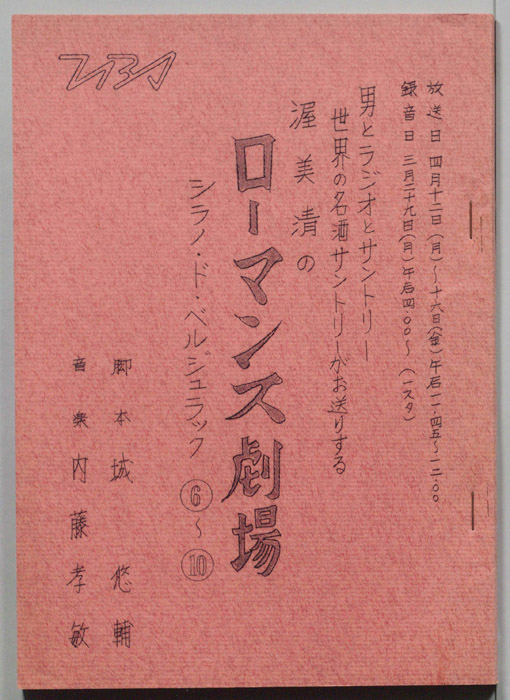 TBS
放送日 四月十二日(月)〜十六日(金)午后一一.四五〜一二.〇〇
録音日 三月二十九日(月)午后四.〇〇〜(一スタ)
男とラジオとサントリー
世界の名酒サントリーがお送りする
渥美清の
ローマンス劇場
シラノ・ド・ベルジュラック ⑥〜⑩
脚本 城 悠輔
音楽 内藤孝敏